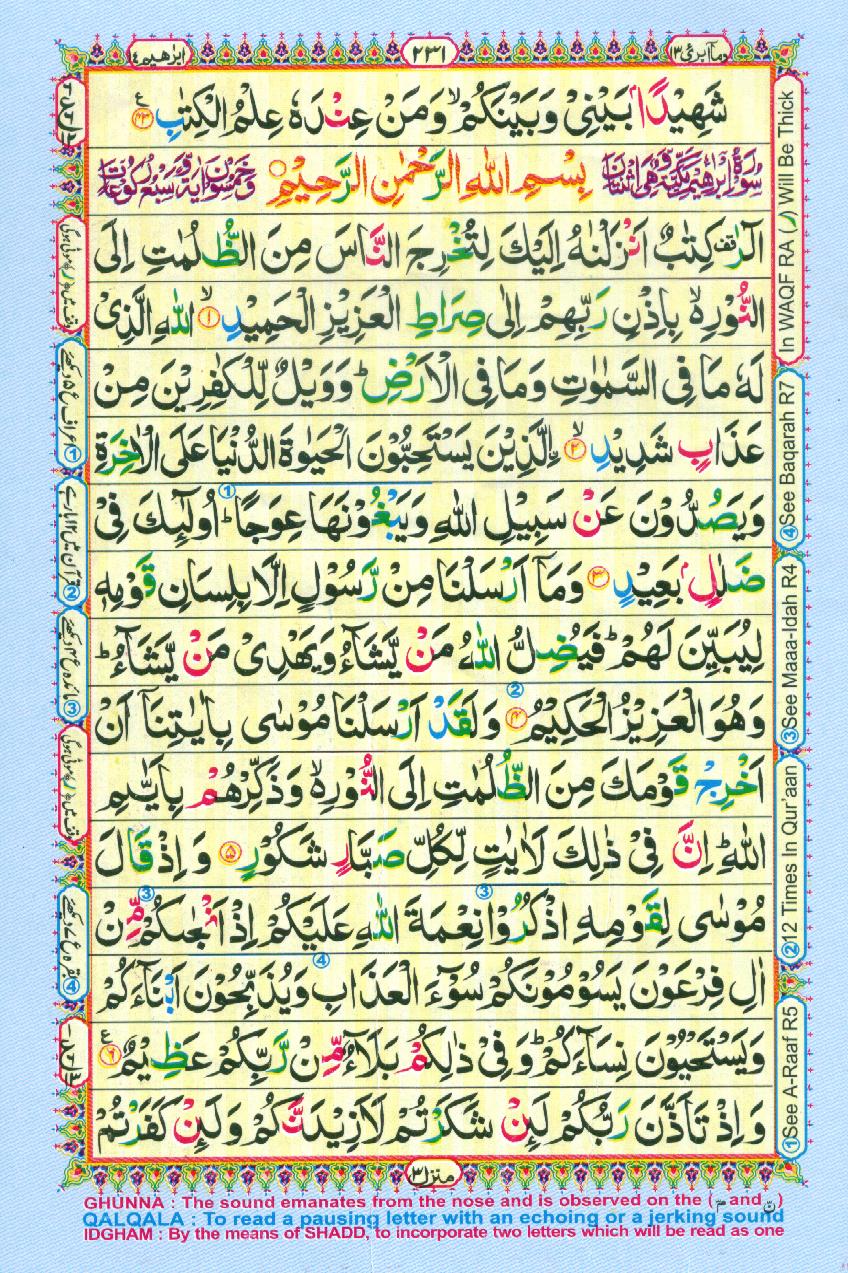 ابرٰهيم ١٤
٢٣١
وما ابرئ ١٣
شَهِيْدًۢا بَيْنِيْ وَبَيْنَكُمْ ۙ وَمَنْ عِنْدَهٗ عِلْمُ الْكِتٰبِ ﴿٤٣﴾ ع
سُوْرَةُ اِبْرٰهِيْمَ مَكِّيَّةٌ وَّهِيَ اثْنَتَانِ بِسْمِ اللّٰهِ الرَّحْمٰنِ الرَّحِيْمِ وَخَمْسُوْنَ اٰيَةً وَّسَبْعُ رُكُوْعَاتٍ
الٓرٰ ۫ قف كِتٰبٌ اَنْزَلْنٰهُ اِلَيْكَ لِتُخْرِجَ النَّاسَ مِنَ الظُّلُمٰتِ اِلَى
النُّوْرِ ۙ۬ بِاِذْنِ رَبِّهِمْ اِلٰى صِرَاطِ الْعَزِيْزِ الْحَمِيْدِ ۙ﴿١﴾ اللّٰهِ الَّذِيْ
لَهٗ مَا فِي السَّمٰوٰتِ وَمَا فِي الْاَرْضِ ؕ وَوَيْلٌ لِّلْكٰفِرِيْنَ مِنْ
عَذَابٍ شَدِيْدِ ۙ﴿٢﴾ اۨلَّذِيْنَ يَسْتَحِبُّوْنَ الْحَيٰوةَ الدُّنْيَا عَلَى الْاٰخِرَةِ
وَيَصُدُّوْنَ عَنْ سَبِيْلِ اللّٰهِ وَيَبْغُوْنَهَا عِوَجًا ؕ اُولٰٓئِكَ فِيْ
ضَلٰلٍۢ بَعِيْدٍ ﴿٣﴾ وَمَاۤ اَرْسَلْنَا مِنْ رَّسُوْلٍ اِلَّا بِلِسَانِ قَوْمِهٖ
لِيُبَيِّنَ لَهُمْ ؕ فَيُضِلُّ اللّٰهُ مَنْ يَّشَآءُ وَيَهْدِيْ مَنْ يَّشَآءُ ؕ
وَهُوَ الْعَزِيْزُ الْحَكِيْمُ ﴿٤﴾ وَلَقَدْ اَرْسَلْنَا مُوْسٰى بِاٰيٰتِنَاۤ اَنْ
اَخْرِجْ قَوْمَكَ مِنَ الظُّلُمٰتِ اِلَى النُّوْرِ ۙ۬ وَذَكِّرْهُمْ بِاَيّٰىمِ
اللّٰهِ ؕ اِنَّ فِيْ ذٰلِكَ لَاٰيٰتٍ لِّكُلِّ صَبَّارٍ شَكُوْرٍ ﴿٥﴾ وَاِذْ قَالَ
مُوْسٰى لِقَوْمِهِ اذْكُرُوْا نِعْمَةَ اللّٰهِ عَلَيْكُمْ اِذْ اَنْجٰىكُمْ مِّنْ
اٰلِ فِرْعَوْنَ يَسُوْمُوْنَكُمْ سُوْٓءَ الْعَذَابِ وَيُذَبِّحُوْنَ اَبْنَآءَكُمْ
وَيَسْتَحْيُوْنَ نِسَآءَكُمْ ؕ وَفِيْ ذٰلِكُمْ بَلَآءٌ مِّنْ رَّبِّكُمْ عَظِيْمٌ ﴿٦﴾ ع
وَاِذْ تَاَذَّنَ رَبُّكُمْ لَئِنْ شَكَرْتُمْ لَاَزِيْدَنَّكُمْ وَلَئِنْ كَفَرْتُمْ
منزل ٣
In WAQF RA (ر) Will Be Thick
④ See Baqarah R7
③ See Maaa-Idah R4
② 12 Times In Qur'aan
① See A-Raaf R5
① اعراف ع ۵ دیکھیئے
② قرآن میں ۱۲ بار ہے
③ مائدہ ع ۴ دیکھیئے
④ بقرہ ع ۷ دیکھیئے
GHUNNA : The sound emanates from the nose and is observed on the (مّ and نّ)
QALQALA : To read a pausing letter with an echoing or a jerking sound
IDGHAM : By the means of SHADD, to incorporate two letters which will be read as one